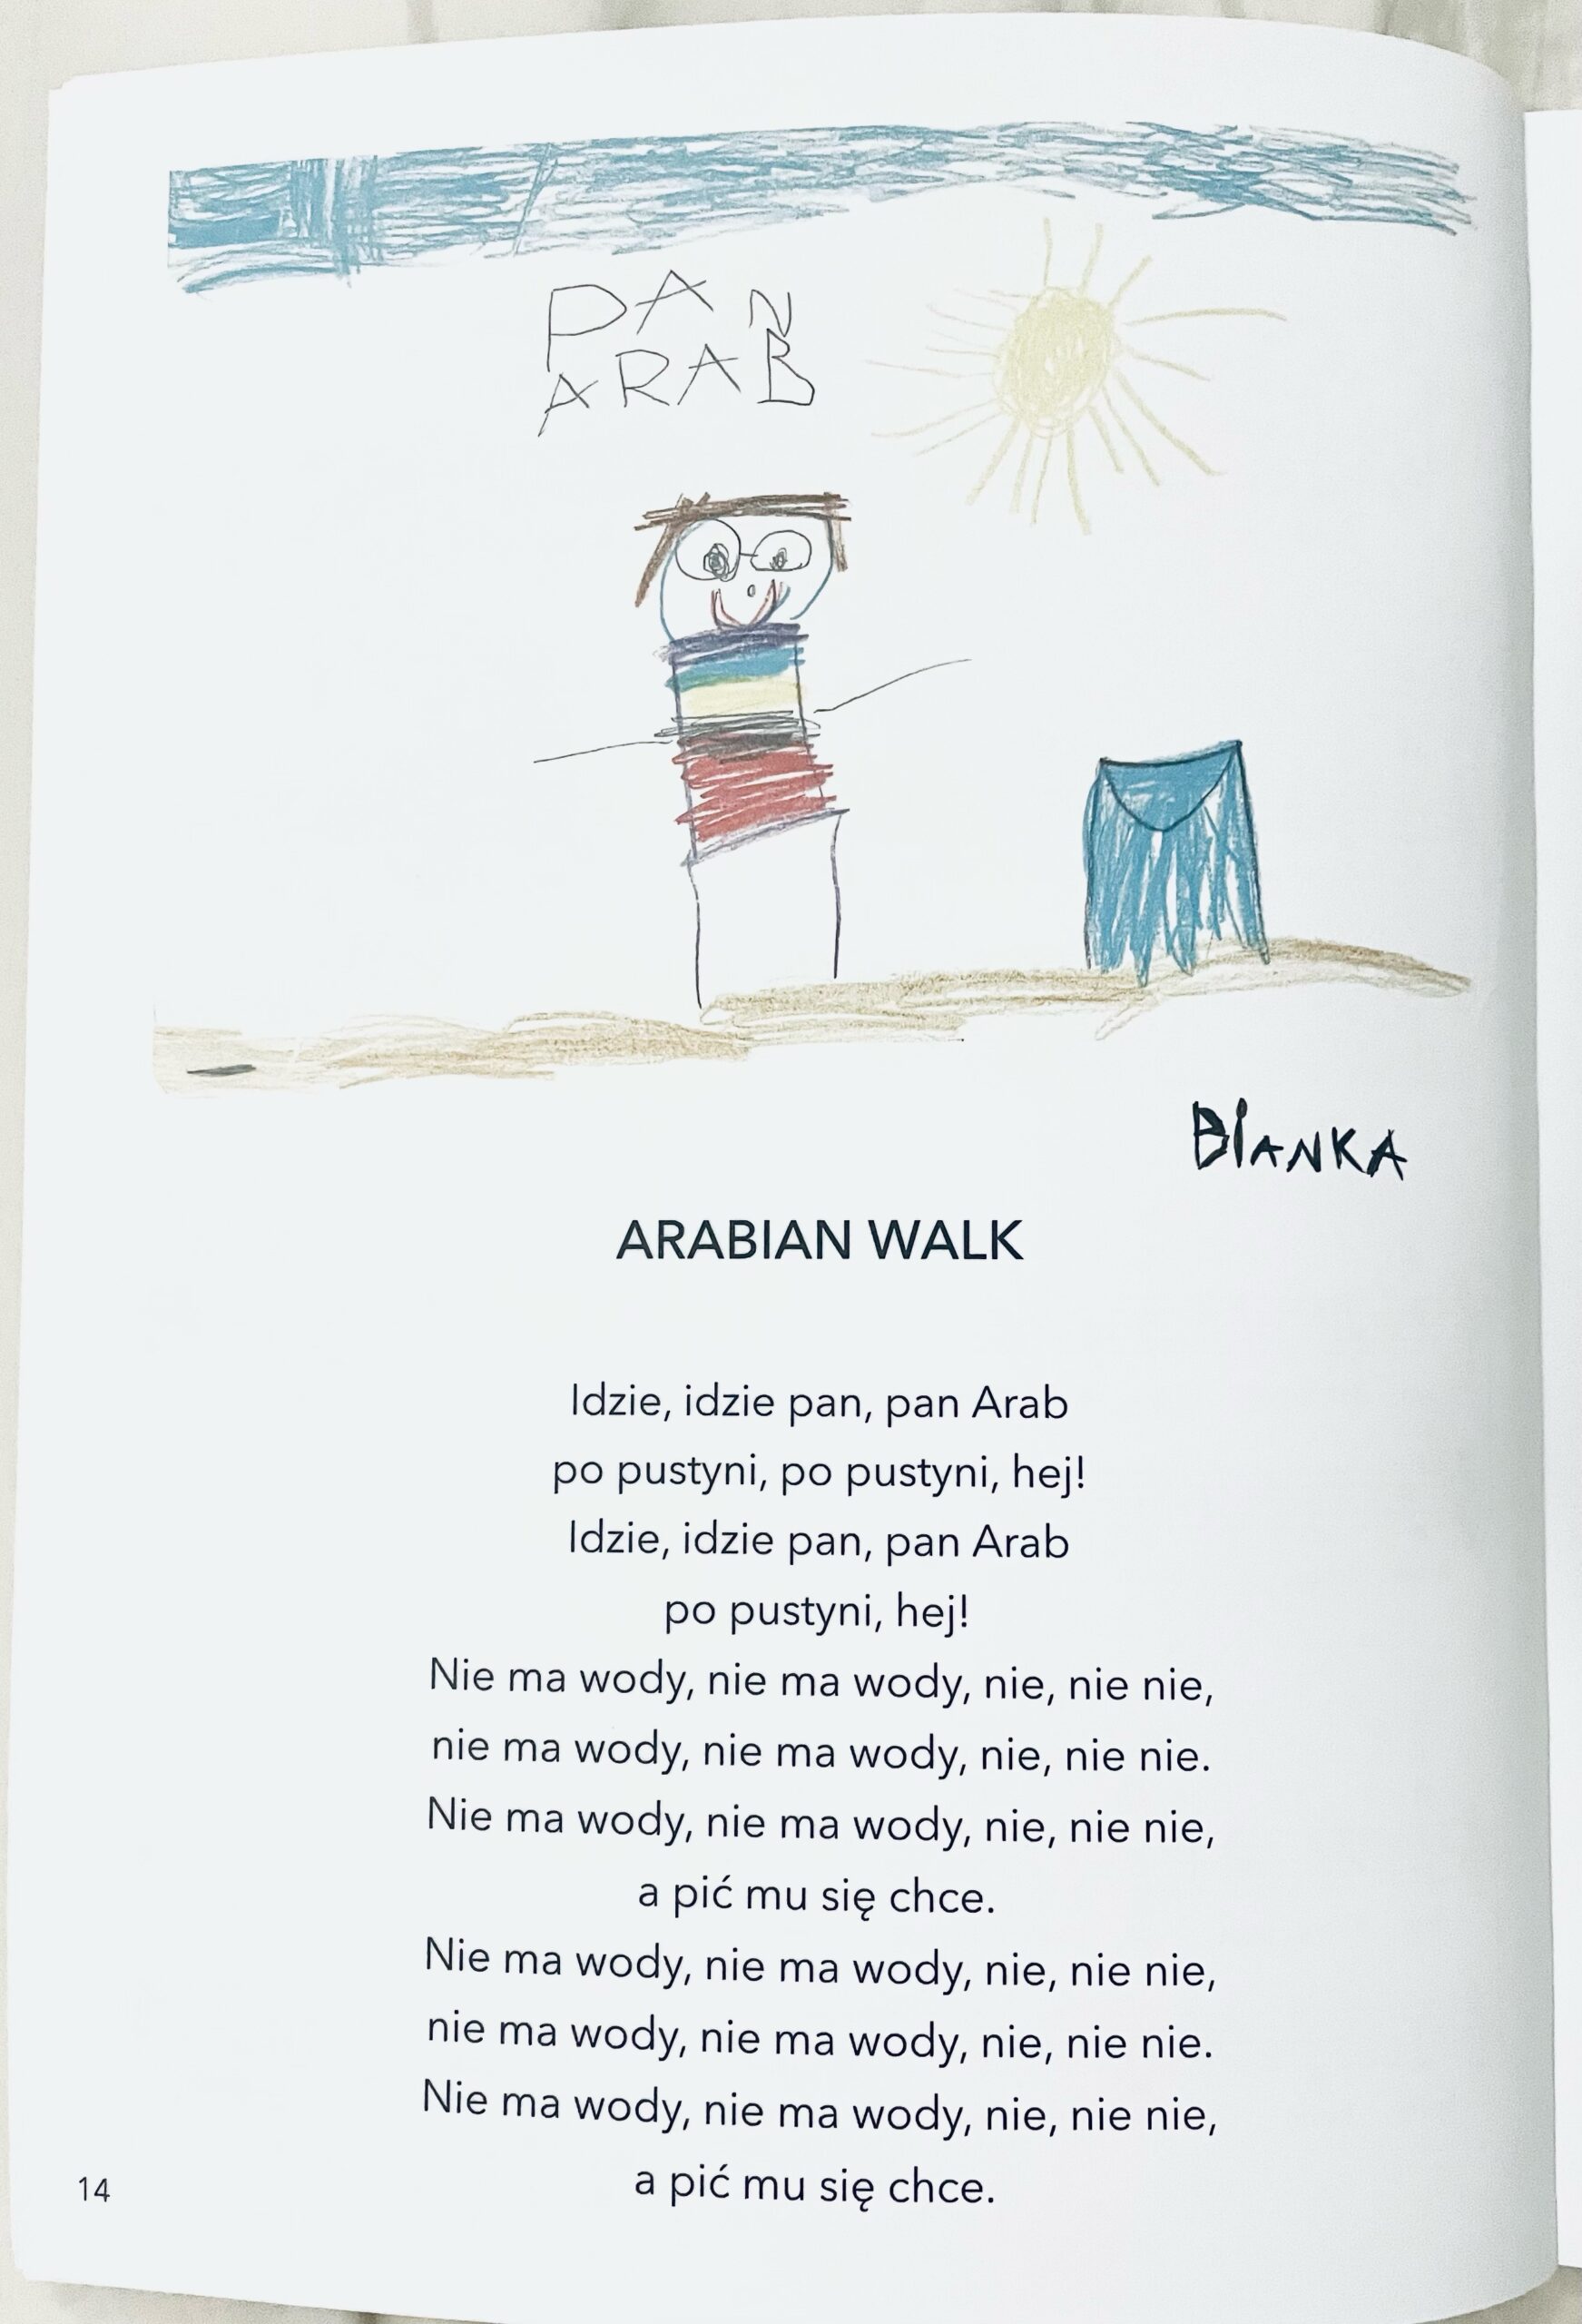 PAN
ARAB
BIANKA
ARABIAN WALK
Idzie, idzie pan, pan Arab
po pustyni, po pustyni, hej!
Idzie, idzie pan, pan Arab
po pustyni, hej!
Nie ma wody, nie ma wody, nie, nie nie,
nie ma wody, nie ma wody, nie, nie nie.
Nie ma wody, nie ma wody, nie, nie nie,
a pić mu się chce.
Nie ma wody, nie ma wody, nie, nie nie,
nie ma wody, nie ma wody, nie, nie nie.
Nie ma wody, nie ma wody, nie, nie nie,
a pić mu się chce.
14